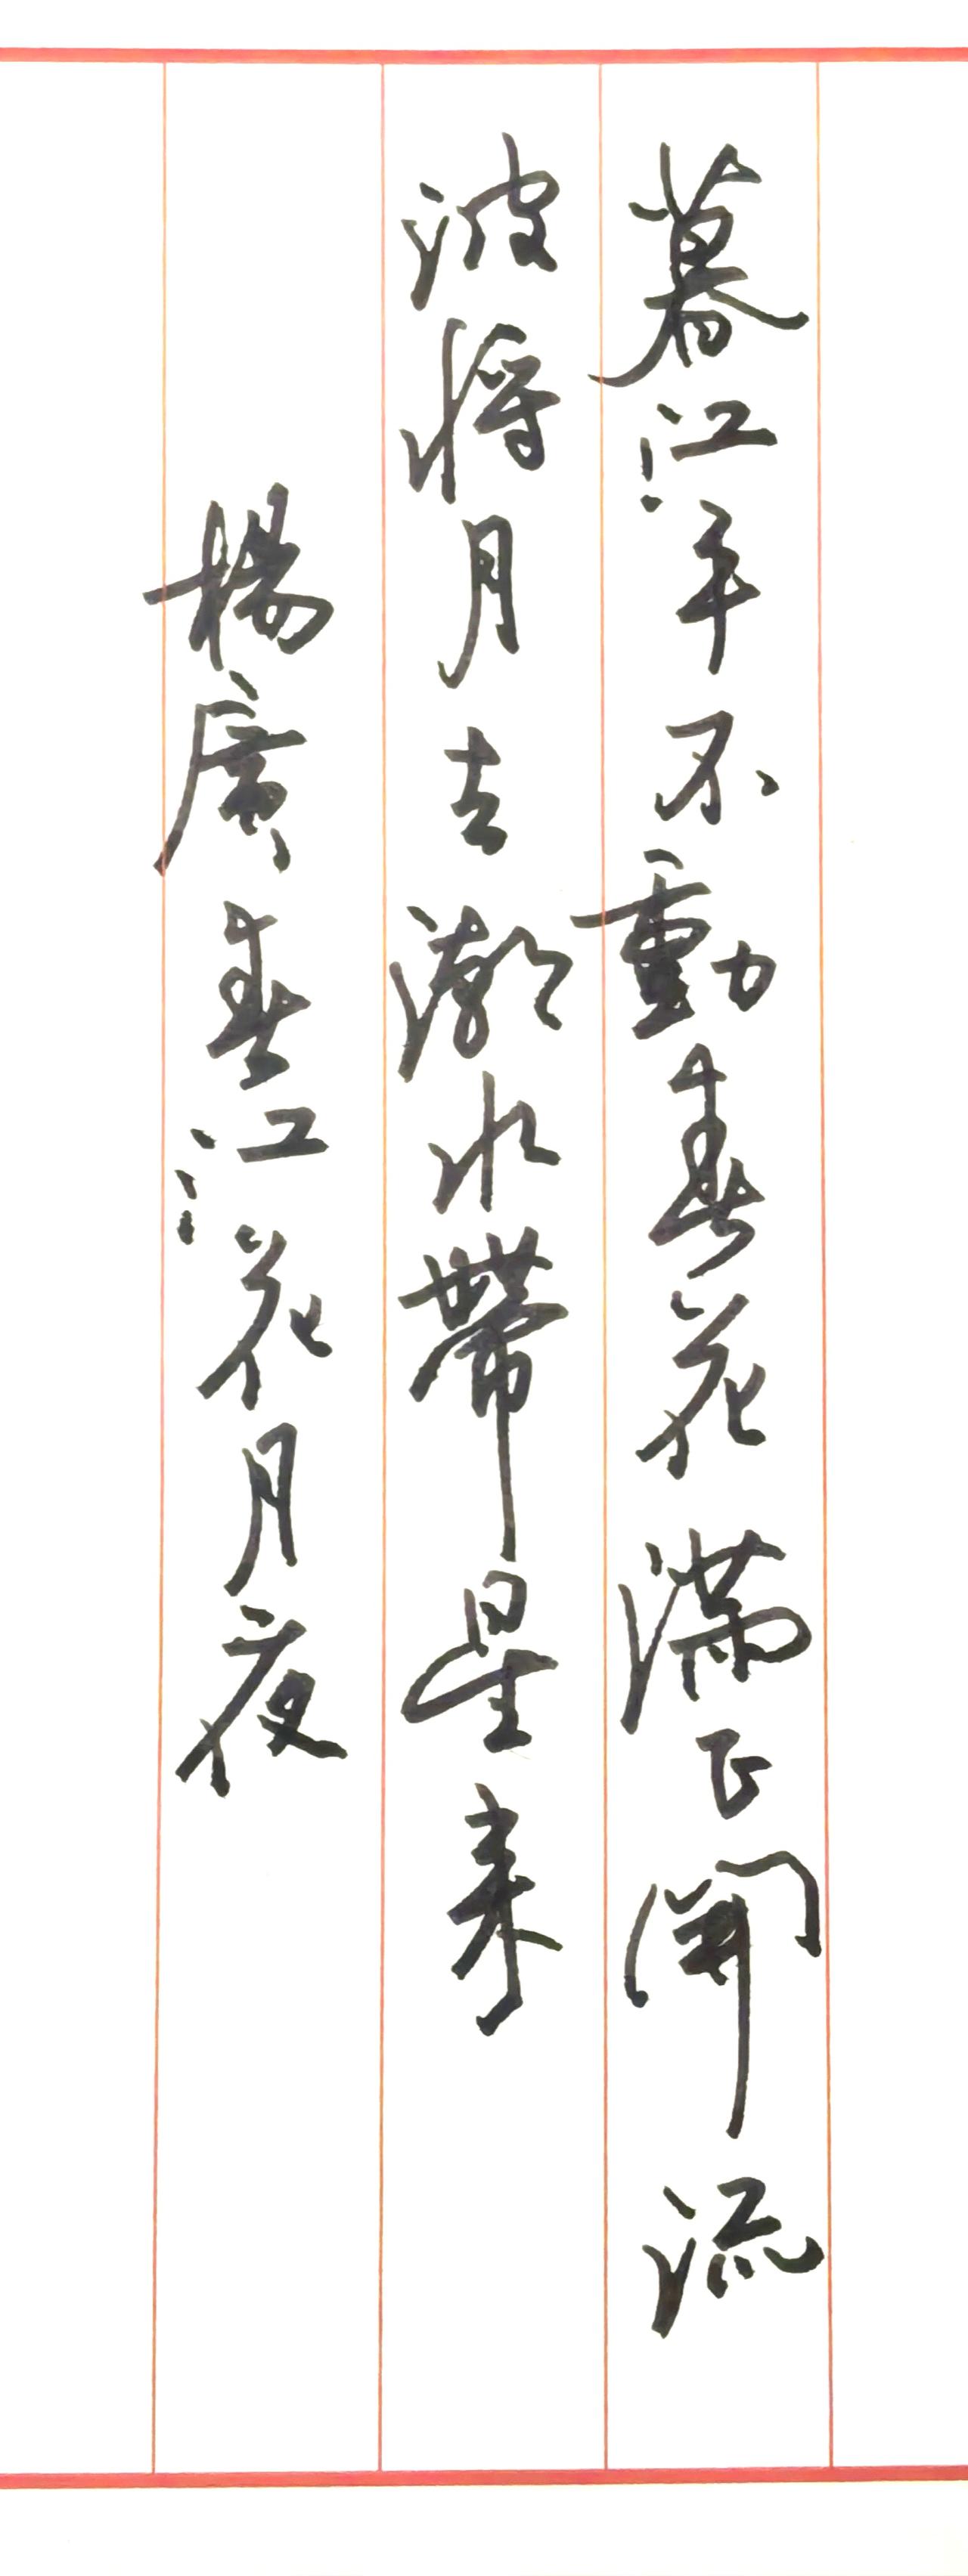 暮江平不動春花滿正開流
波將月去潮水帶星來
楊廣春江花月夜